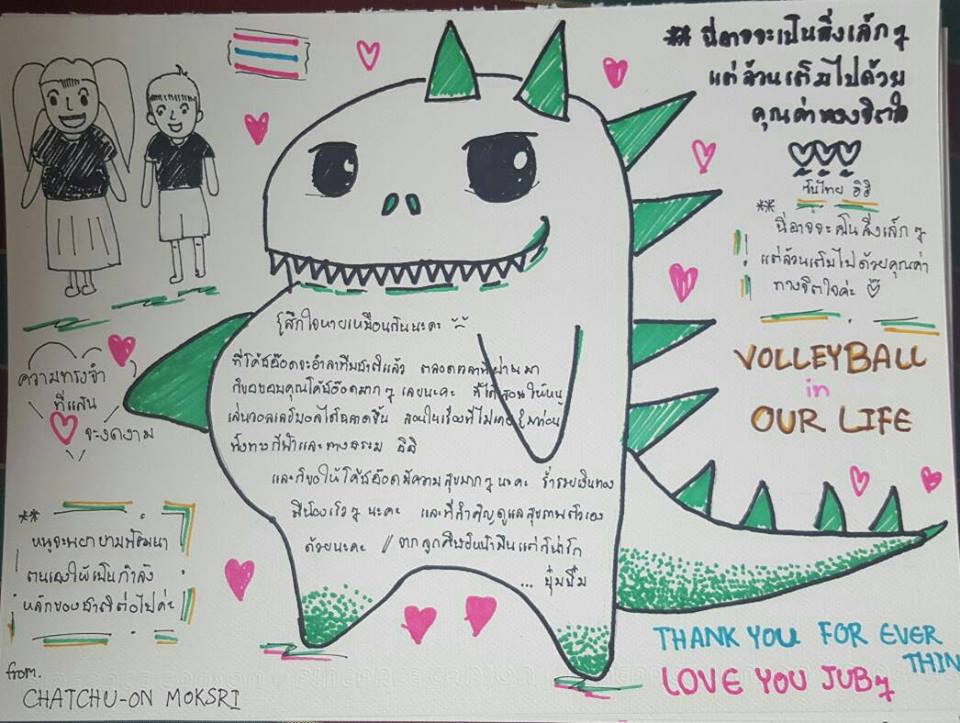 ** นี่อาจจะเป็นสิ่งเล็กๆ
แต่ล้วนเต็มไปด้วย
คุณค่าทางจิตใจ
วันไทย อิอิ
** นี่อาจจะเป็นสิ่งเล็กๆ
แต่ล้วนเต็มไปด้วยคุณค่า
ทางจิตใจค่ะ
VOLLEYBALL
in
OUR LIFE
รู้สึกใจหายเหมือนกันนะคะ
ที่โค้ชอ๊อดจะอำลาทีมชาติแล้ว ตลอดเวลาที่ผ่านมา
ก็ขอขอบคุณโค้ชอ๊อดมากๆ เลยนะคะ ที่ได้สอนให้หนู
เล่นวอลเลย์บอลได้ฉลาดขึ้น สอนในเรื่องที่ไม่เคยรู้มาก่อน
ทั้งทางกีฬาและทางธรรม อิอิ
และก็ขอให้โค้ชอ๊อดมีความสุขมากๆ นะคะ ร่ำรวยเงินทอง
มีน้องเร็วๆ นะคะ และที่สำคัญดูแลสุขภาพตัวเอง
ด้วยนะคะ // จากลูกศิษย์หน้ามึนแต่ก็น่ารัก
... บุ๋มบิ๋ม
ความทรงจำ
ที่แสน
จะงดงาม
** หนูจะพยายามพัฒนา
ตนเองให้เป็นกำลัง
หลักของชาติต่อไปค่ะ
from.
CHATCHU-ON MOKSRI
THANK YOU FOR EVER
THIN
LOVE YOU JUBๆ